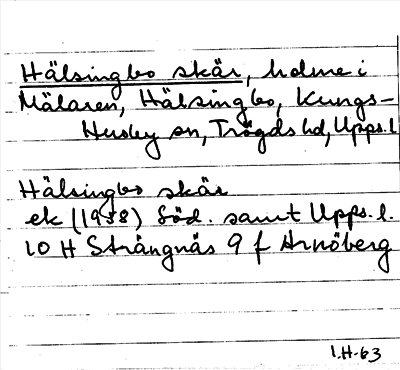 Hälsingbo skär, holme i
Mälaren, Hälsingbo, Kungs-
Husby sn, Trögds hd, Upps.l
Hälsingbo skär
ek (1958) Söd. samt Upps. l.
10 H Strängnäs 9 f Arnöberg
I.H-63